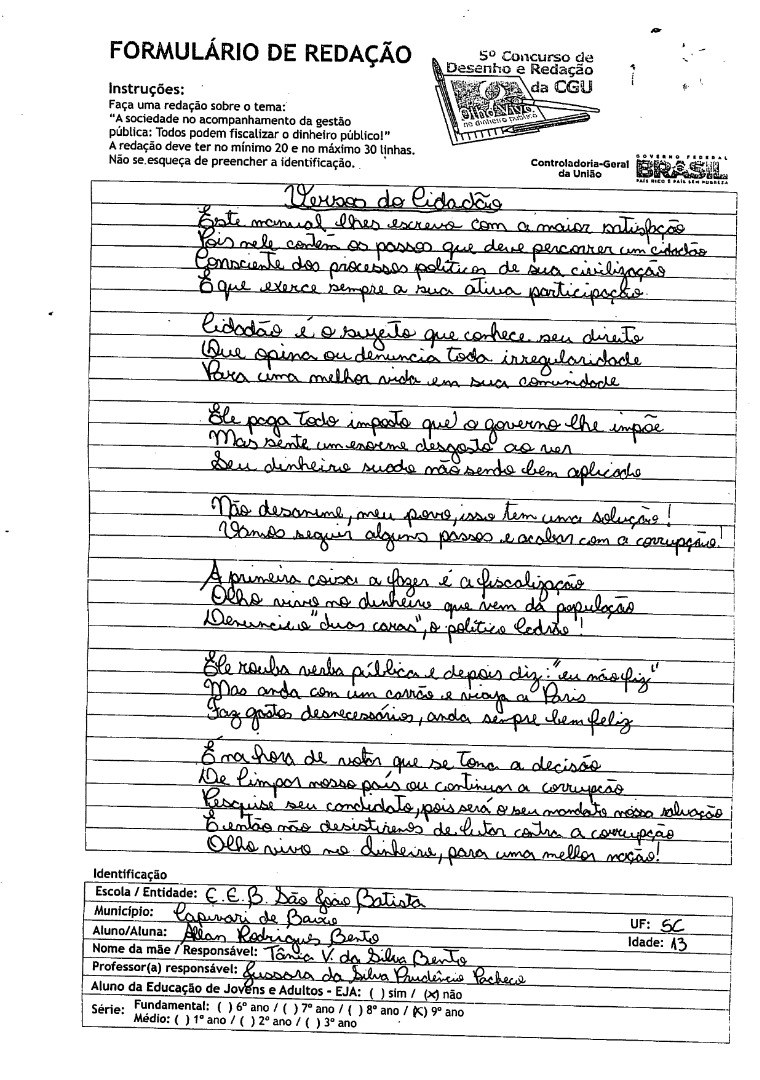 FORMULÁRIO DE REDAÇÃO
5º Concurso de
Desenho e Redação
da CGU
Olho Vivo
no dinheiro público
Instruções:
Faça uma redação sobre o tema:
"A sociedade no acompanhamento da gestão
pública: Todos podem fiscalizar o dinheiro público!"
A redação deve ter no mínimo 20 e no máximo 30 linhas.
Não se esqueça de preencher a identificação.
Controladoria-Geral
da União
GOVERNO FEDERAL
BRASIL
PAÍS RICO É PAÍS SEM POBREZA
Versos do Cidadão
Este manual lhes escrevo com a maior satisfação
Pois nele contém os passos que deve percorrer um cidadão
Consciente dos processos políticos de sua civilização
E que exerce sempre a sua ativa participação.
Cidadão é o sujeito que conhece seu direito
Que opina ou denuncia toda irregularidade
Para uma melhor vida em sua comunidade
Ele paga todo imposto que o governo lhe impõe
Mas sente um enorme desgosto ao ver
Seu dinheiro suado não sendo bem aplicado
Não desanime, meu povo, isso tem uma solução!
Vamos seguir alguns passos e acabar com a corrupção!
A primeira coisa a fazer é a fiscalização
Olho vivo no dinheiro que vem da população
Denuncie o "duas caras", o político ladrão!
Ele rouba verba pública e depois diz: "eu não fiz"
Mas anda com um carrão e viaja a Paris
Faz gastos desnecessários, anda sempre bem feliz
É na hora de votar que se toma a decisão
De limpar nosso país ou continuar a corrupção
Pesquise seu candidato, pois será o seu mandato nossa salvação
E então não desistiremos de lutar contra a corrupção
Olho vivo no dinheiro, para uma melhor nação!
Identificação
Escola / Entidade: E.E.B. São João Batista
Município: Capivari de Baixo
UF: SC
Aluno/Aluna: Allan Rodrigues Bento
Idade: 13
Nome da mãe / Responsável: Tânia V. da Silva Bento
Professor(a) responsável: Jussara da Silva Prudêncio Pacheco
Aluno da Educação de Jovens e Adultos - EJA: ( ) sim / (x) não
Série: Fundamental: ( ) 6º ano / ( ) 7º ano / ( ) 8º ano / (x) 9º ano
Médio: ( ) 1º ano / ( ) 2º ano / ( ) 3º ano